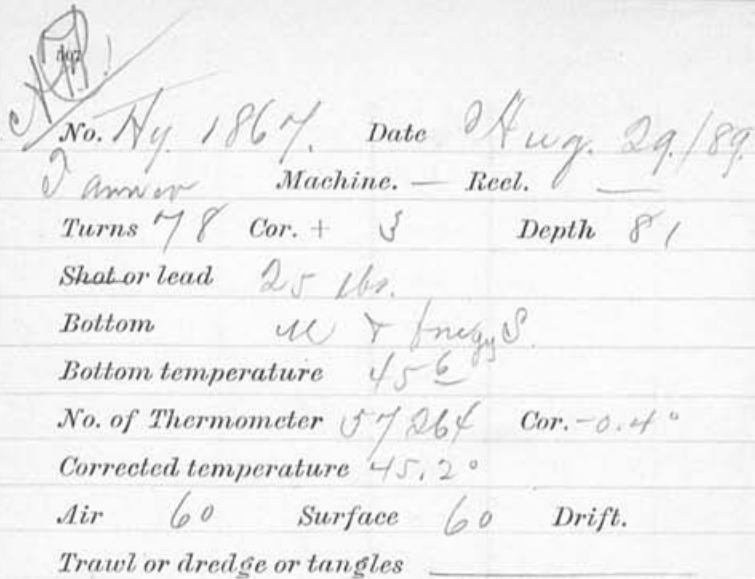 No. Hy. 1867. Date Aug. 29./89.
Tanner Machine. — Reel. —
Turns 78 Cor. + 3 Depth 81
Shot or lead 25 lbs.
Bottom M & S.
Bottom temperature 45 6
No. of Thermometer 57264 Cor. -0.4°
Corrected temperature 45.2°
Air 60 Surface 60 Drift.
Trawl or dredge or tangles